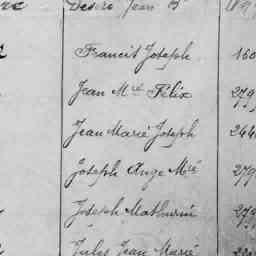 Désiré Jean Bte
Francis Joseph 160
Jean Mie Félix 279
Jean Marie Joseph 244
Joseph Ange Mie 279
Joseph Mathurin 279
Jules Jean Marie